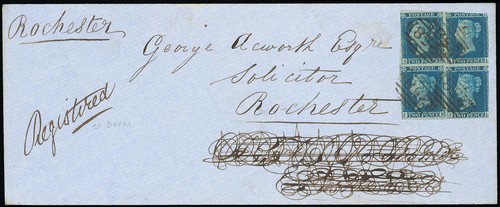 Rochester
George Acworth Esqre
Solicitor
Rochester
Registered
POSTAGE POSTAGE
TWO PENCE TWO PENCE
POSTAGE POSTAGE
TWO PENCE TWO PENCE